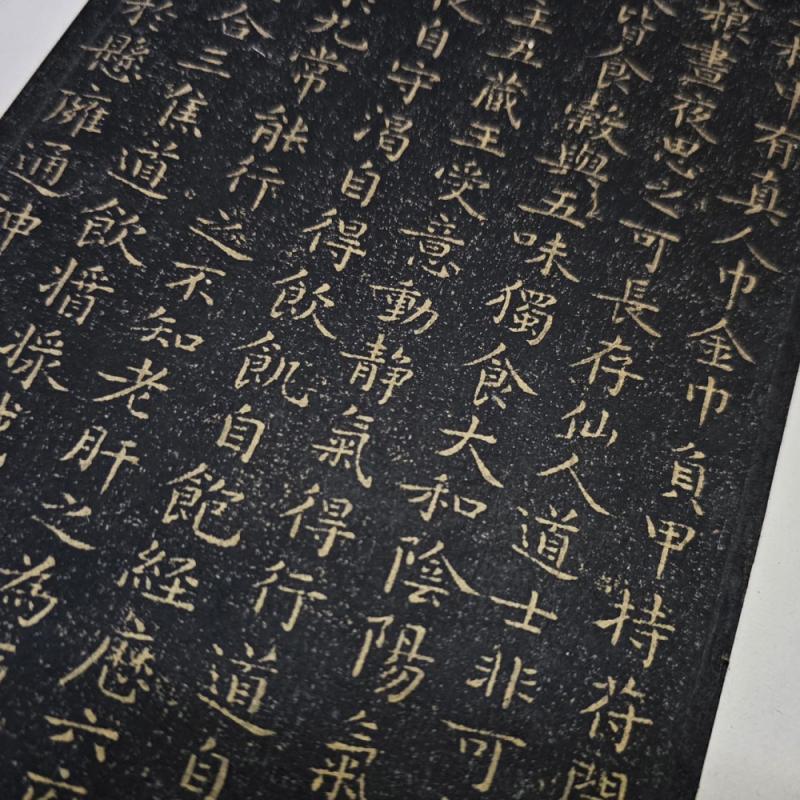 中有真人巾金巾負甲持符開
根晝夜思之可長存仙人道士非可
皆食穀與五味獨食大和陰陽氣
主五藏王受意動靜氣得行道自
夜自守渴自得飲飢自飽經歷六府
於九常能行之不知老肝之為
合三焦道飲醬漿我
於懸膺通神